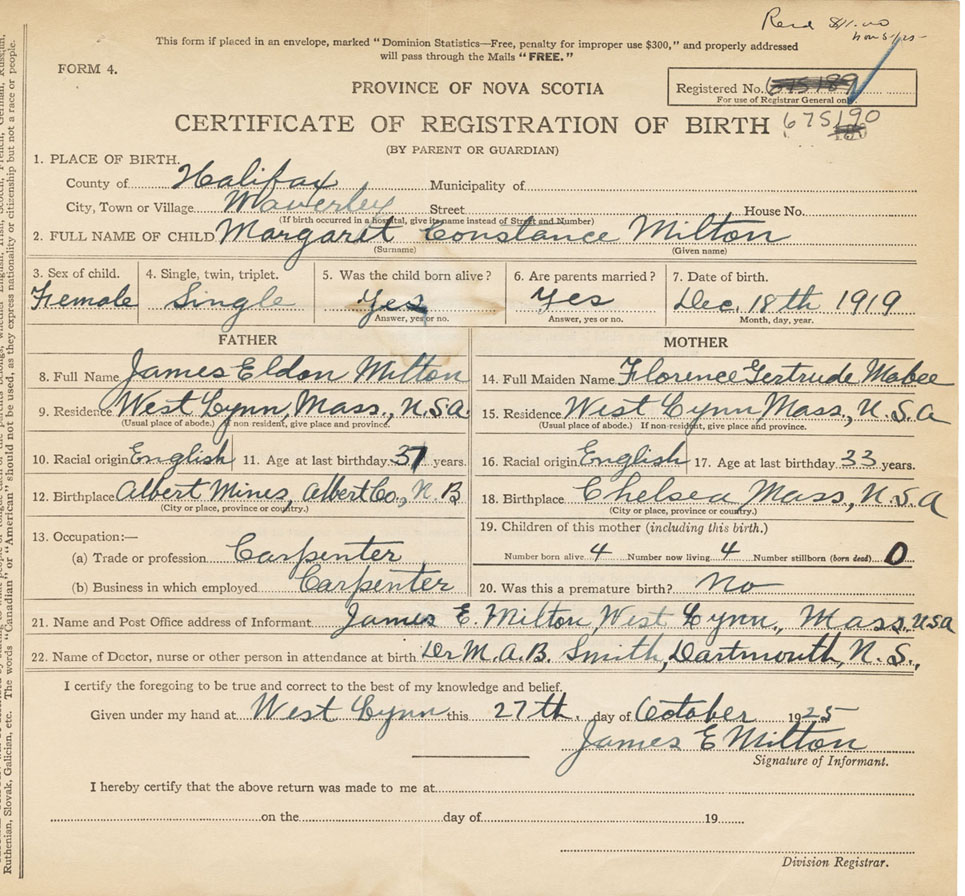 Recd $1.00
Nov 5/25
This form if placed in an envelope, marked "Dominion Statistics—Free, penalty for improper use $300," and properly addressed
will pass through the Mails "FREE."
FORM 4.
PROVINCE OF NOVA SCOTIA
Registered No. 675189
For use of Registrar General only
CERTIFICATE OF REGISTRATION OF BIRTH 675190
(BY PARENT OR GUARDIAN)
1. PLACE OF BIRTH.
County of Halifax Municipality of
City, Town or Village Waverley Street House No.
(If birth occurred in a hospital, give its name instead of Street and Number)
2. FULL NAME OF CHILD Margaret Constance Milton
(Surname) (Given name)
3. Sex of child. 4. Single, twin, triplet. 5. Was the child born alive? 6. Are parents married? 7. Date of birth.
Female Single Yes Yes Dec. 18th 1919
Answer, yes or no. Answer, yes or no. Month, day, year.
FATHER MOTHER
8. Full Name James Eldon Milton 14. Full Maiden Name Florence Gertrude Mabee
9. Residence West Lynn, Mass., U.S.A 15. Residence West Lynn Mass., U.S.A
(Usual place of abode.) If non resident, give place and province. (Usual place of abode.) If non-resident, give place and province.
10. Racial origin English 11. Age at last birthday 37 years. 16. Racial origin English 17. Age at last birthday 33 years.
12. Birthplace Albert Mines, Albert Co., N.B 18. Birthplace Chelsea Mass, U.S.A
(City or place, province or country.) (City or place, province or country.)
13. Occupation:— 19. Children of this mother (including this birth.)
(a) Trade or profession Carpenter Number born alive 4 Number now living 4 Number stillborn (born dead) 0
(b) Business in which employed Carpenter 20. Was this a premature birth? No
21. Name and Post Office address of Informant James E. Milton, West Lynn., Mass. USA
22. Name of Doctor, nurse or other person in attendance at birth. Dr M.A.B. Smith, Dartmouth, N.S.,
I certify the foregoing to be true and correct to the best of my knowledge and belief.
Given under my hand at West Lynn this 27th. day of October 1925
James E Milton
Signature of Informant.
I hereby certify that the above return was made to me at
on the day of 19
Division Registrar.
Ruthenian, Slovak, Galician, etc. The words "Canadian" or "American" should not be used, as they express nationality or citizenship but not a race or people.